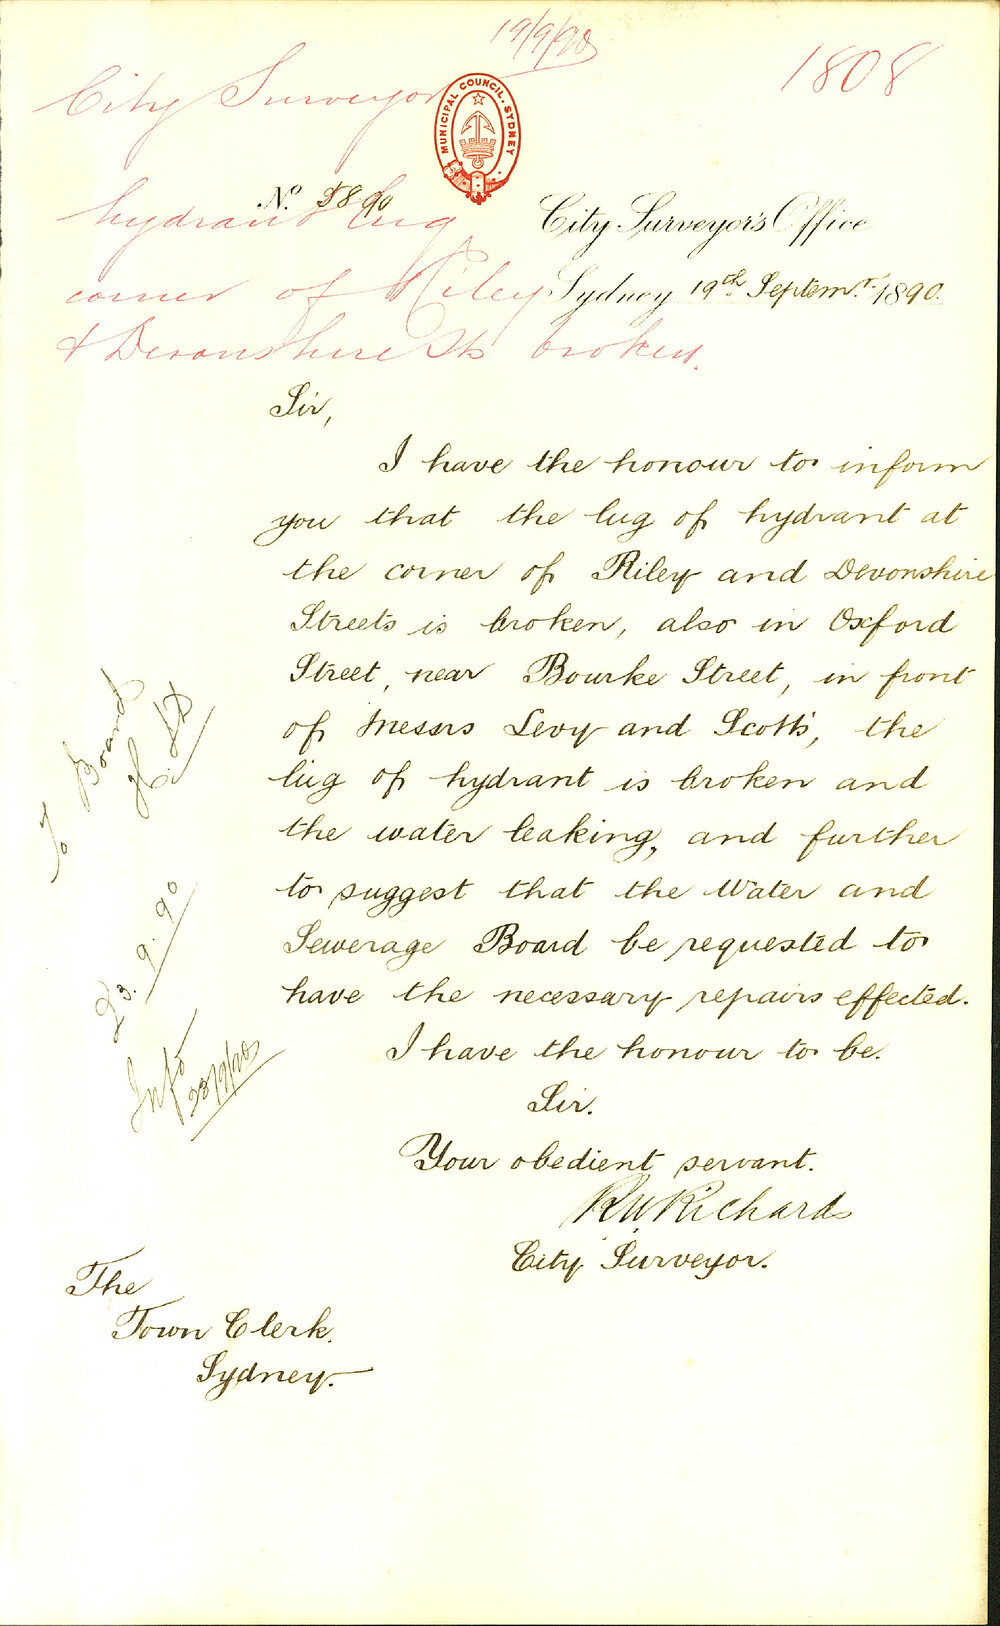 19/9/90
1808
City Surveyor
MUNICIPAL COUNCIL. SYDNEY
No. 90
hydrant lug
City Surveyor's Office
corner of Riley
Sydney 19th Septemr. 1890.
& Devonshire Sts broken.
Sir,
I have the honour to inform
you that the lug of hydrant at
the corner of Riley and Devonshire
Streets is broken, also in Oxford
Street, near Bourke Street, in front
of Messrs Levy and Scott's, the
lug of hydrant is broken and
the water leaking, and further
to suggest that the Water and
Sewerage Board be requested to
have the necessary repairs effected.
I have the honour to be.
Sir.
Your obedient servant.
R W Richards
City Surveyor.
The
Town Clerk.
Sydney.
To Board
23.9.90
23/9/90